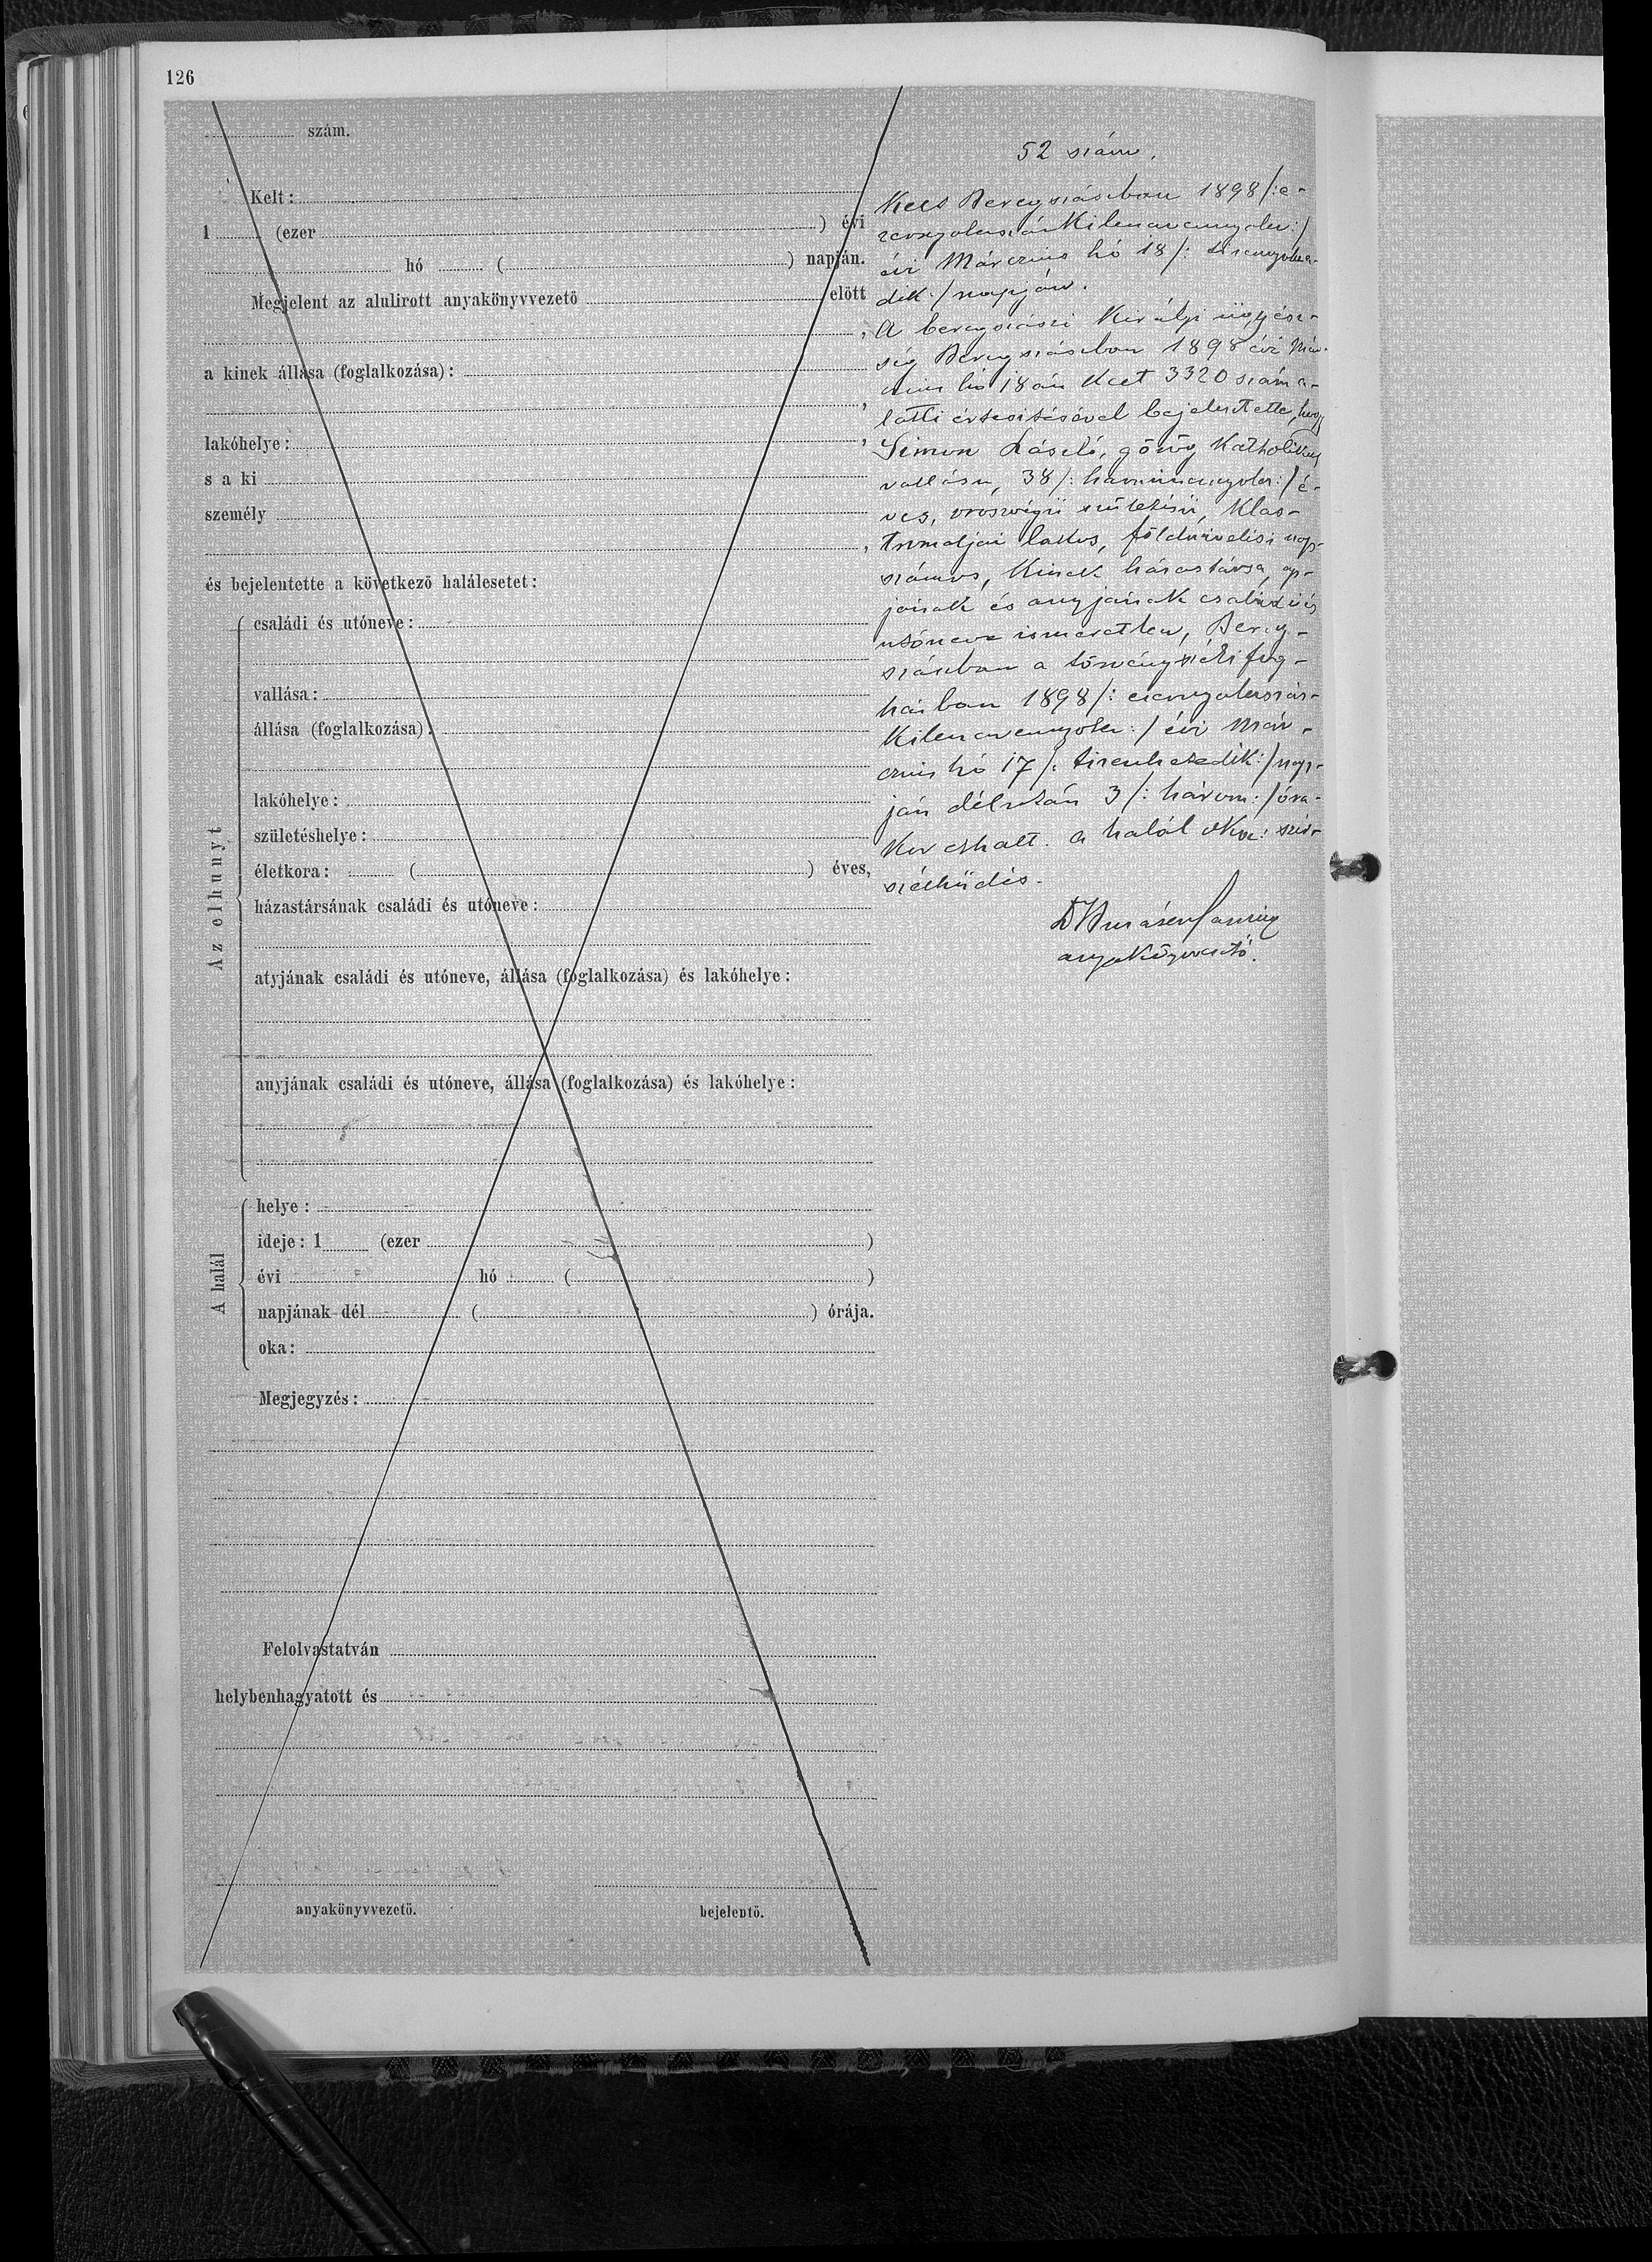 126
szám.
Kelt:
1 (ezer ) évi
hó ( ) napján.
Megjelent az alulirott anyakönyvvezető előtt
,
a kinek állása (foglalkozása):
,
lakóhelye: ,
s a ki
személy
,
és bejelentette a következő halálesetet:
Az elhunyt
családi és utóneve:
vallása:
állása (foglalkozása):
lakóhelye:
születéshelye:
életkora: ( ) éves,
házastársának családi és utóneve:
atyjának családi és utóneve, állása (foglalkozása) és lakóhelye:
anyjának családi és utóneve, állása (foglalkozása) és lakóhelye:
A halál
helye:
ideje: 1 (ezer )
évi hó ( )
napjának dél ( ) órája.
oka:
Megjegyzés:
Felolvastatván
helybenhagyatott és
anyakönyvvezető. bejelentő.
52 szám.
Kelt Beregszászban 1898 /: e-
zernyolczszázkilenczvennyolcz :/
évi Márczius hó 18 /: tizennyolcza-
dik :/ napján.
A beregszászi Királyi ügyész-
ség Beregszászban 1898 évi Már-
czius hó 18 án kelt 3320 szám a-
latti értesitésével bejelentette, hogy
Simon László, görög Katholikus
vallásu, 38 /: harmincznyolcz :/ é-
ves, oroszvégi születésü, Klas-
tromaljai lakos, földmivelési nap-
számos, kinek házastársa, ap-
jának és anyjának családi és
utóneve ismeretlen, Bereg-
szászban a törvényszéki fog-
házban 1898 /: ezernyolczszáz-
kilenczvennyolcz :/ évi Már-
czius hó 17 /: tizenhetedik :/ nap-
ján délután 3 /: három :/ óra-
kor elhalt. a halál oka: sziv-
szélhüdés.
anyakönyvvezető.